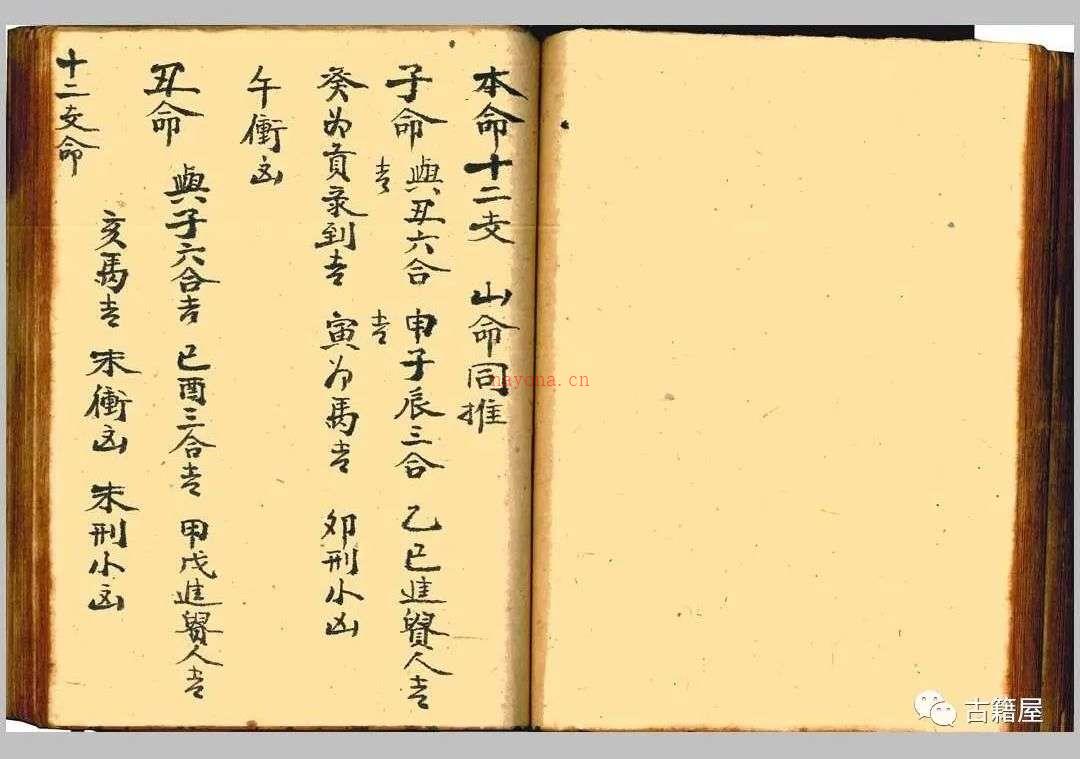 本命十二支 山命同推
子命 與丑六合吉 申子辰三合吉 乙己進賢人吉
癸为貢彔到吉 寅为馬吉 卯刑小凶
午衝凶
丑命 與子六合吉 巳酉三合吉 甲戊進賢人吉
亥馬吉 未衝凶 未刑小凶
十二支命
nayona.cn
古籍屋